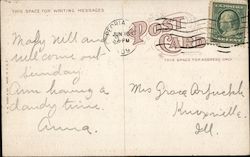 THIS SPACE FOR WRITING MESSAGES
Mary Nell and
will come out
Sunday.
Am having a
dandy time.
Anna.
PEORIA
JUN
PM
POST
CARD
THIS SPACE FOR ADDRESS ONLY
Mrs Grace Arbuckle
Knoxville
Ill.